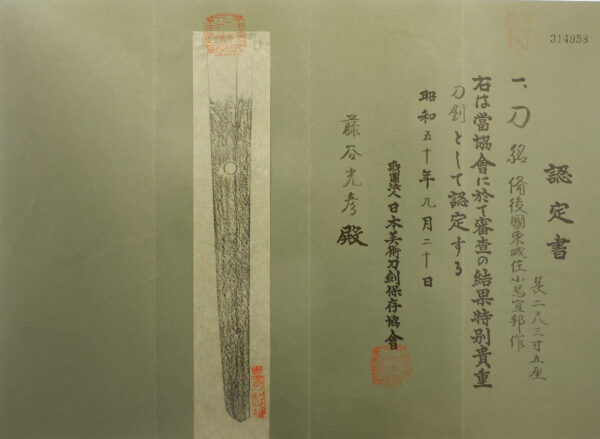 314958
認定書
一、刀 銘 備後國東城住小烏宜邦作
長二尺三寸五厘
右は當協會に於て審査の結果特別貴重
刀剣として認定する
昭和五十年九月二十日
財團法人日本美術刀剣保存協會
藤谷光彦殿